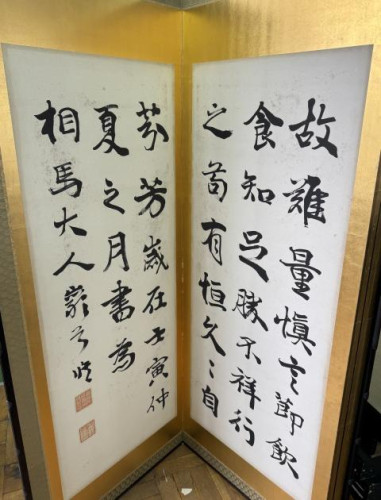 故難量慎言節飲
食知足勝不祥行
之苟有恒久々自
芬芳歲在壬寅仲
夏之月書為
相馬大人巖谷修